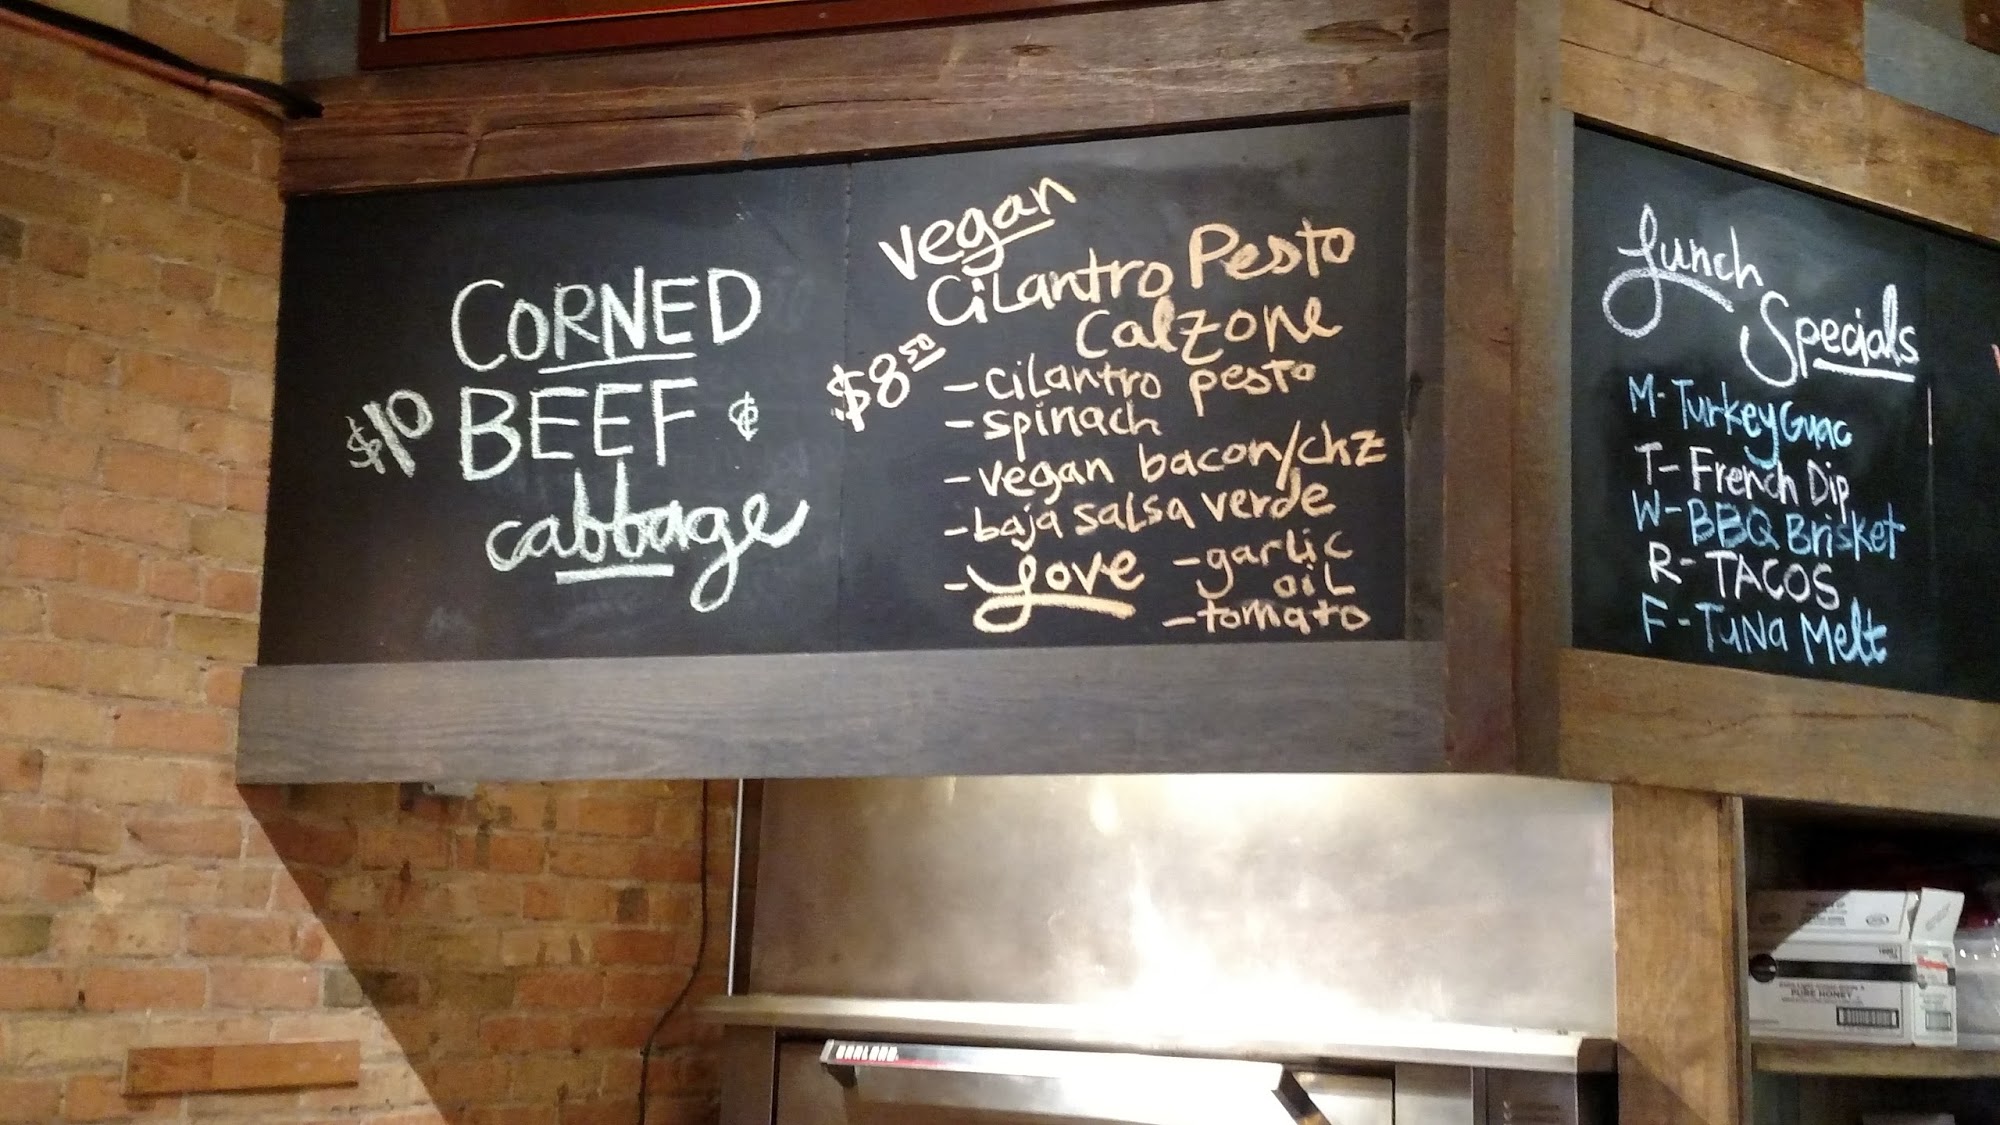 CORNED
$10 BEEF &
cabbage
vegan
Cilantro Pesto
Calzone
$8.50
- cilantro pesto
- spinach
- vegan bacon/chz
- baja salsa verde
- Love
- garlic
oil
- tomato
Lunch
Specials
M - Turkey Guac
T - French Dip
W - BBQ Brisket
R - TACOS
F - Tuna Melt
GARLAND
PURE HONEY